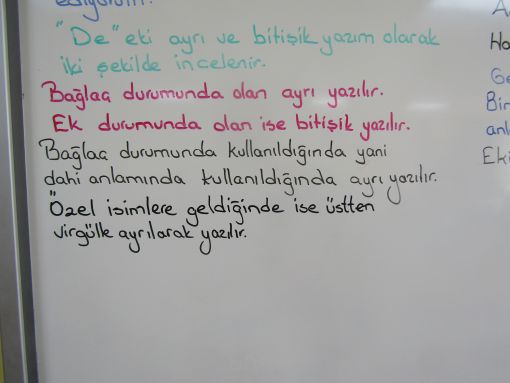 "De" eki ayrı ve bitişik yazım olarak
iki şekilde incelenir.
Bağlaç durumunda olan ayrı yazılır.
Ek durumunda olan ise bitişik yazılır.
Bağlaç durumunda kullanıldığında yani
dahi anlamında kullanıldığında ayrı yazılır.
"Özel isimlere geldiğinde ise üstten
virgülle ayrılarak yazılır.